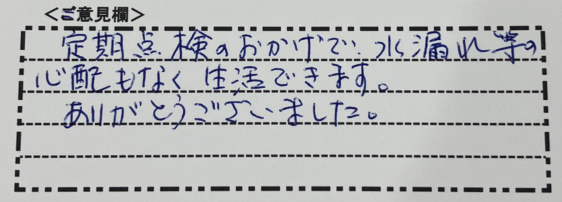 ＜ご意見欄＞
定期点検のおかげで、水漏れ等の
心配もなく生活できます。
ありがとうございました。